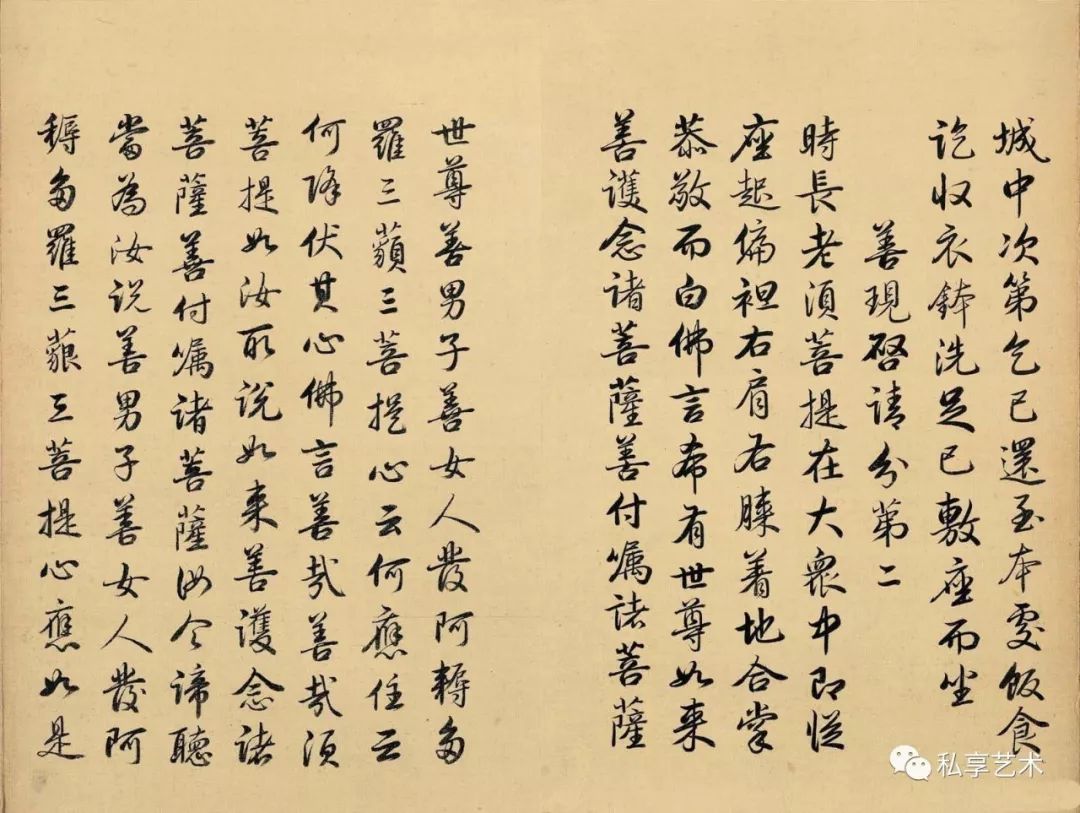 城中次第乞已還至本處飯食
訖収衣鉢洗足已敷座而坐
善現啓請分第二
時長老須菩提在大衆中即從
座起偏袒右肩右膝着地合掌
恭敬而白佛言希有世尊如来
善護念諸菩薩善付嘱諸菩薩
世尊善男子善女人發阿耨多
羅三藐三菩提心云何應住云
何降伏其心佛言善哉善哉須
菩提如汝所說如来善護念諸
菩薩善付嘱諸菩薩汝今諦聽
當為汝說善男子善女人發阿
耨多羅三藐三菩提心應如是
私享艺术